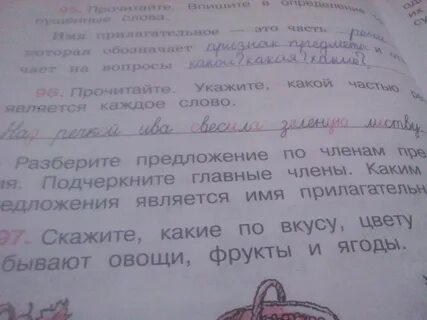 95. Прочитайте. Впишите в определение
пущенные слова.
Имя прилагательное — это часть речи
которая обозначает признак предмета и от
чает на вопросы какой? какая? какие?
96. Прочитайте. Укажите, какой частью ре
является каждое слово.
Над речкой ива свесила зеленую листву.
Разберите предложение по членам пре
ия. Подчеркните главные члены. Каким
едложения является имя прилагательн
97. Скажите, какие по вкусу, цвету
бывают овощи, фрукты и ягоды.